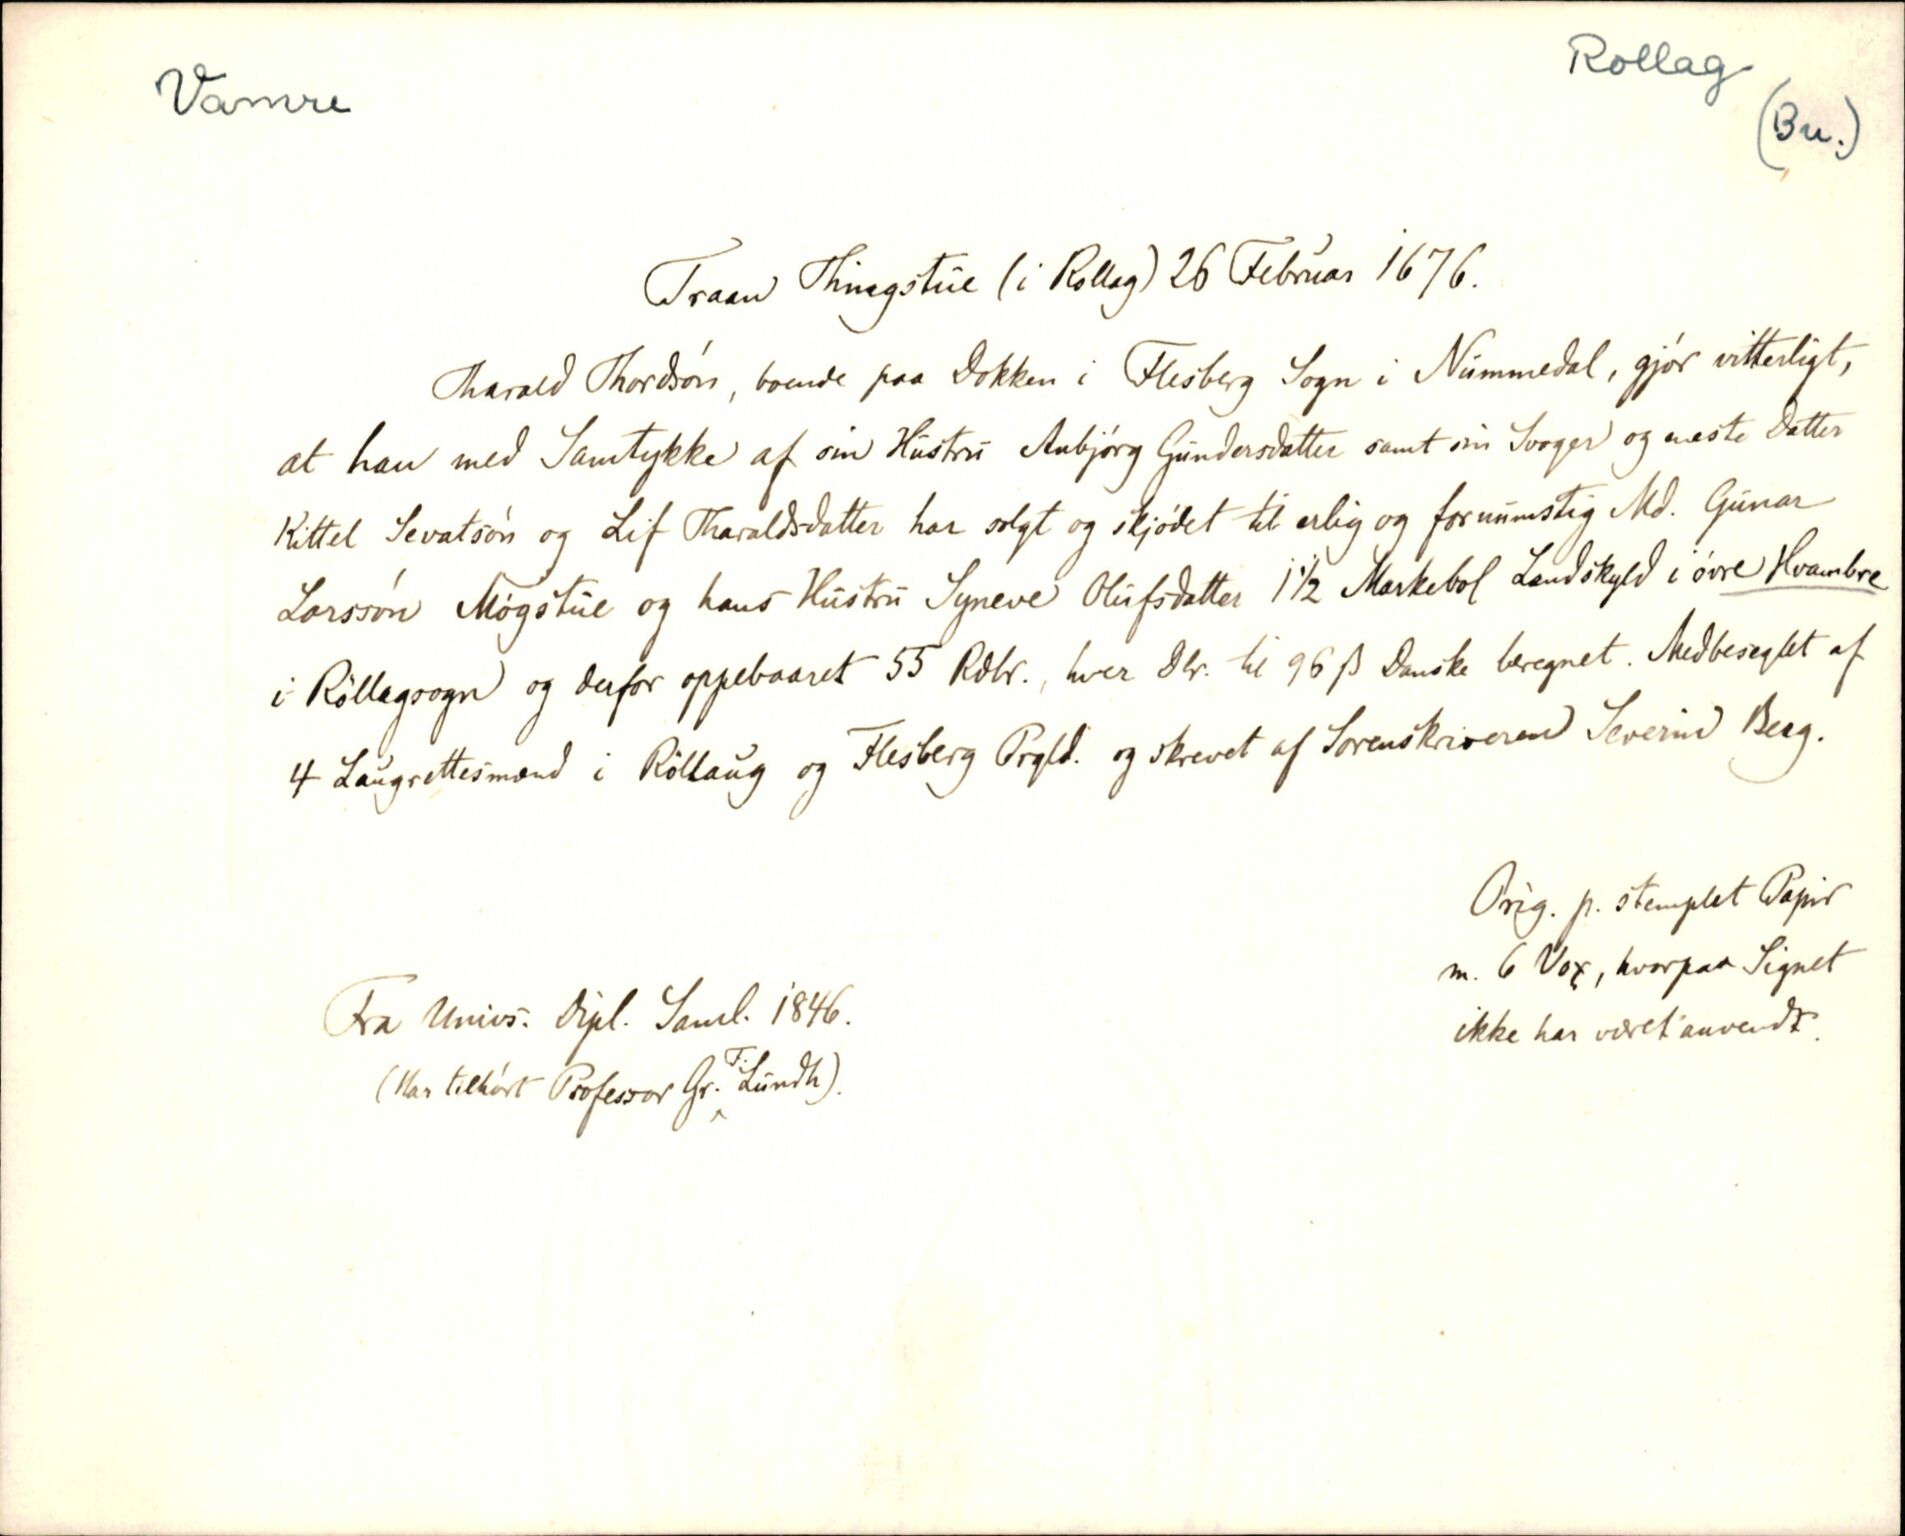 Vamre
Rollag
(Bu.)
Traan Thingstue (i Rollag) 26 Februar 1676.
Tharald Thordsøn, boende paa Dokken i Flesberg Sogn i Nummedal, gjør vitterligt,
at han med Samtykke af sin Hustru Anbjørg Gundersdatter samt sin Svoger og neste Datter
Kittel Sevatsøn og Lif Tharaldsdatter har solgt og skjødet til erlig og fornumstig Md. Gunar
Larssøn Møgstue og hans Hustru Syneve Olufsdatter 1 1/2 Markebol Landskyld i øvre Hvambre
i Røllagsogn og derfor oppebaaret 55 Rdlr., hver Dlr. til 96 ß Danske beregnet. Medbeseglet af
4 Laugrettesmænd i Røllaug og Flesberg Prgld. og skrevet af Sorenskriveren Severin Berg.
Orig. p. stemplet Papir
m. 6 Vox, hvorpaa Signet
ikke har været anvendt.
Fra Univs. Dipl. Saml. 1846.
(Har tilhørt Professor Gr. F. Lundh).